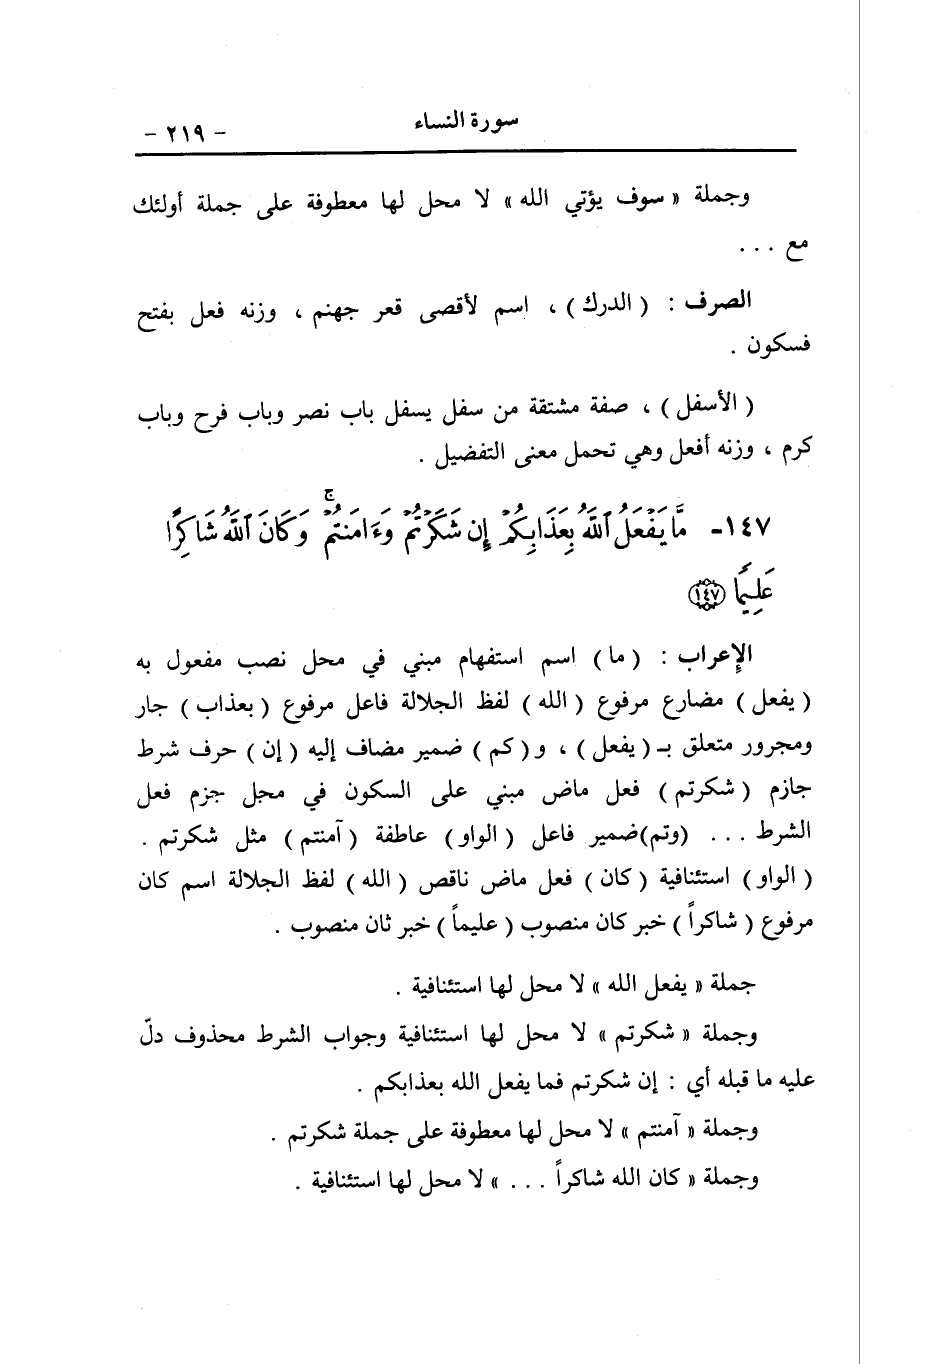 سورة النساء
- ٢١٩ -
وجملة « سوف يؤتي الله » لا محل لها معطوفة على جملة أولئك
مع . . .
الصرف : ( الدرك ) ، اسم لأقصى قعر جهنم ، وزنه فعل بفتح
فسكون .
( الأسفل ) ، صفة مشتقة من سفل يسفل باب نصر وباب فرح وباب
كرم ، وزنه أفعل وهي تحمل معنى التفضيل .
١٤٧- مَّا يَفْعَلُ ٱللَّهُ بِعَذَابِكُمْ إِن شَكَرْتُمْ وَءَامَنتُمْ ۚ وَكَانَ ٱللَّهُ شَاكِرًا
عَلِيمًا ١٤٧
الإعراب : ( ما ) اسم استفهام مبني في محل نصب مفعول به
( يفعل ) مضارع مرفوع ( الله ) لفظ الجلالة فاعل مرفوع ( بعذاب ) جار
ومجرور متعلق بـ ( يفعل ) ، و ( كم ) ضمير مضاف إليه ( إن ) حرف شرط
جازم ( شكرتم ) فعل ماض مبني على السكون في محل جزم فعل
الشرط . . . (وتم)ضمير فاعل ( الواو ) عاطفة ( آمنتم ) مثل شكرتم .
( الواو ) استئنافية ( كان ) فعل ماض ناقص ( الله ) لفظ الجلالة اسم كان
مرفوع ( شاكراً ) خبر كان منصوب ( عليماً ) خبر ثان منصوب .
جملة « يفعل الله » لا محل لها استئنافية .
وجملة « شكرتم » لا محل لها استئنافية وجواب الشرط محذوف دلّ
عليه ما قبله أي : إن شكرتم فما يفعل الله بعذابكم .
وجملة « آمنتم » لا محل لها معطوفة على جملة شكرتم .
وجملة « كان الله شاكراً . . . » لا محل لها استئنافية .